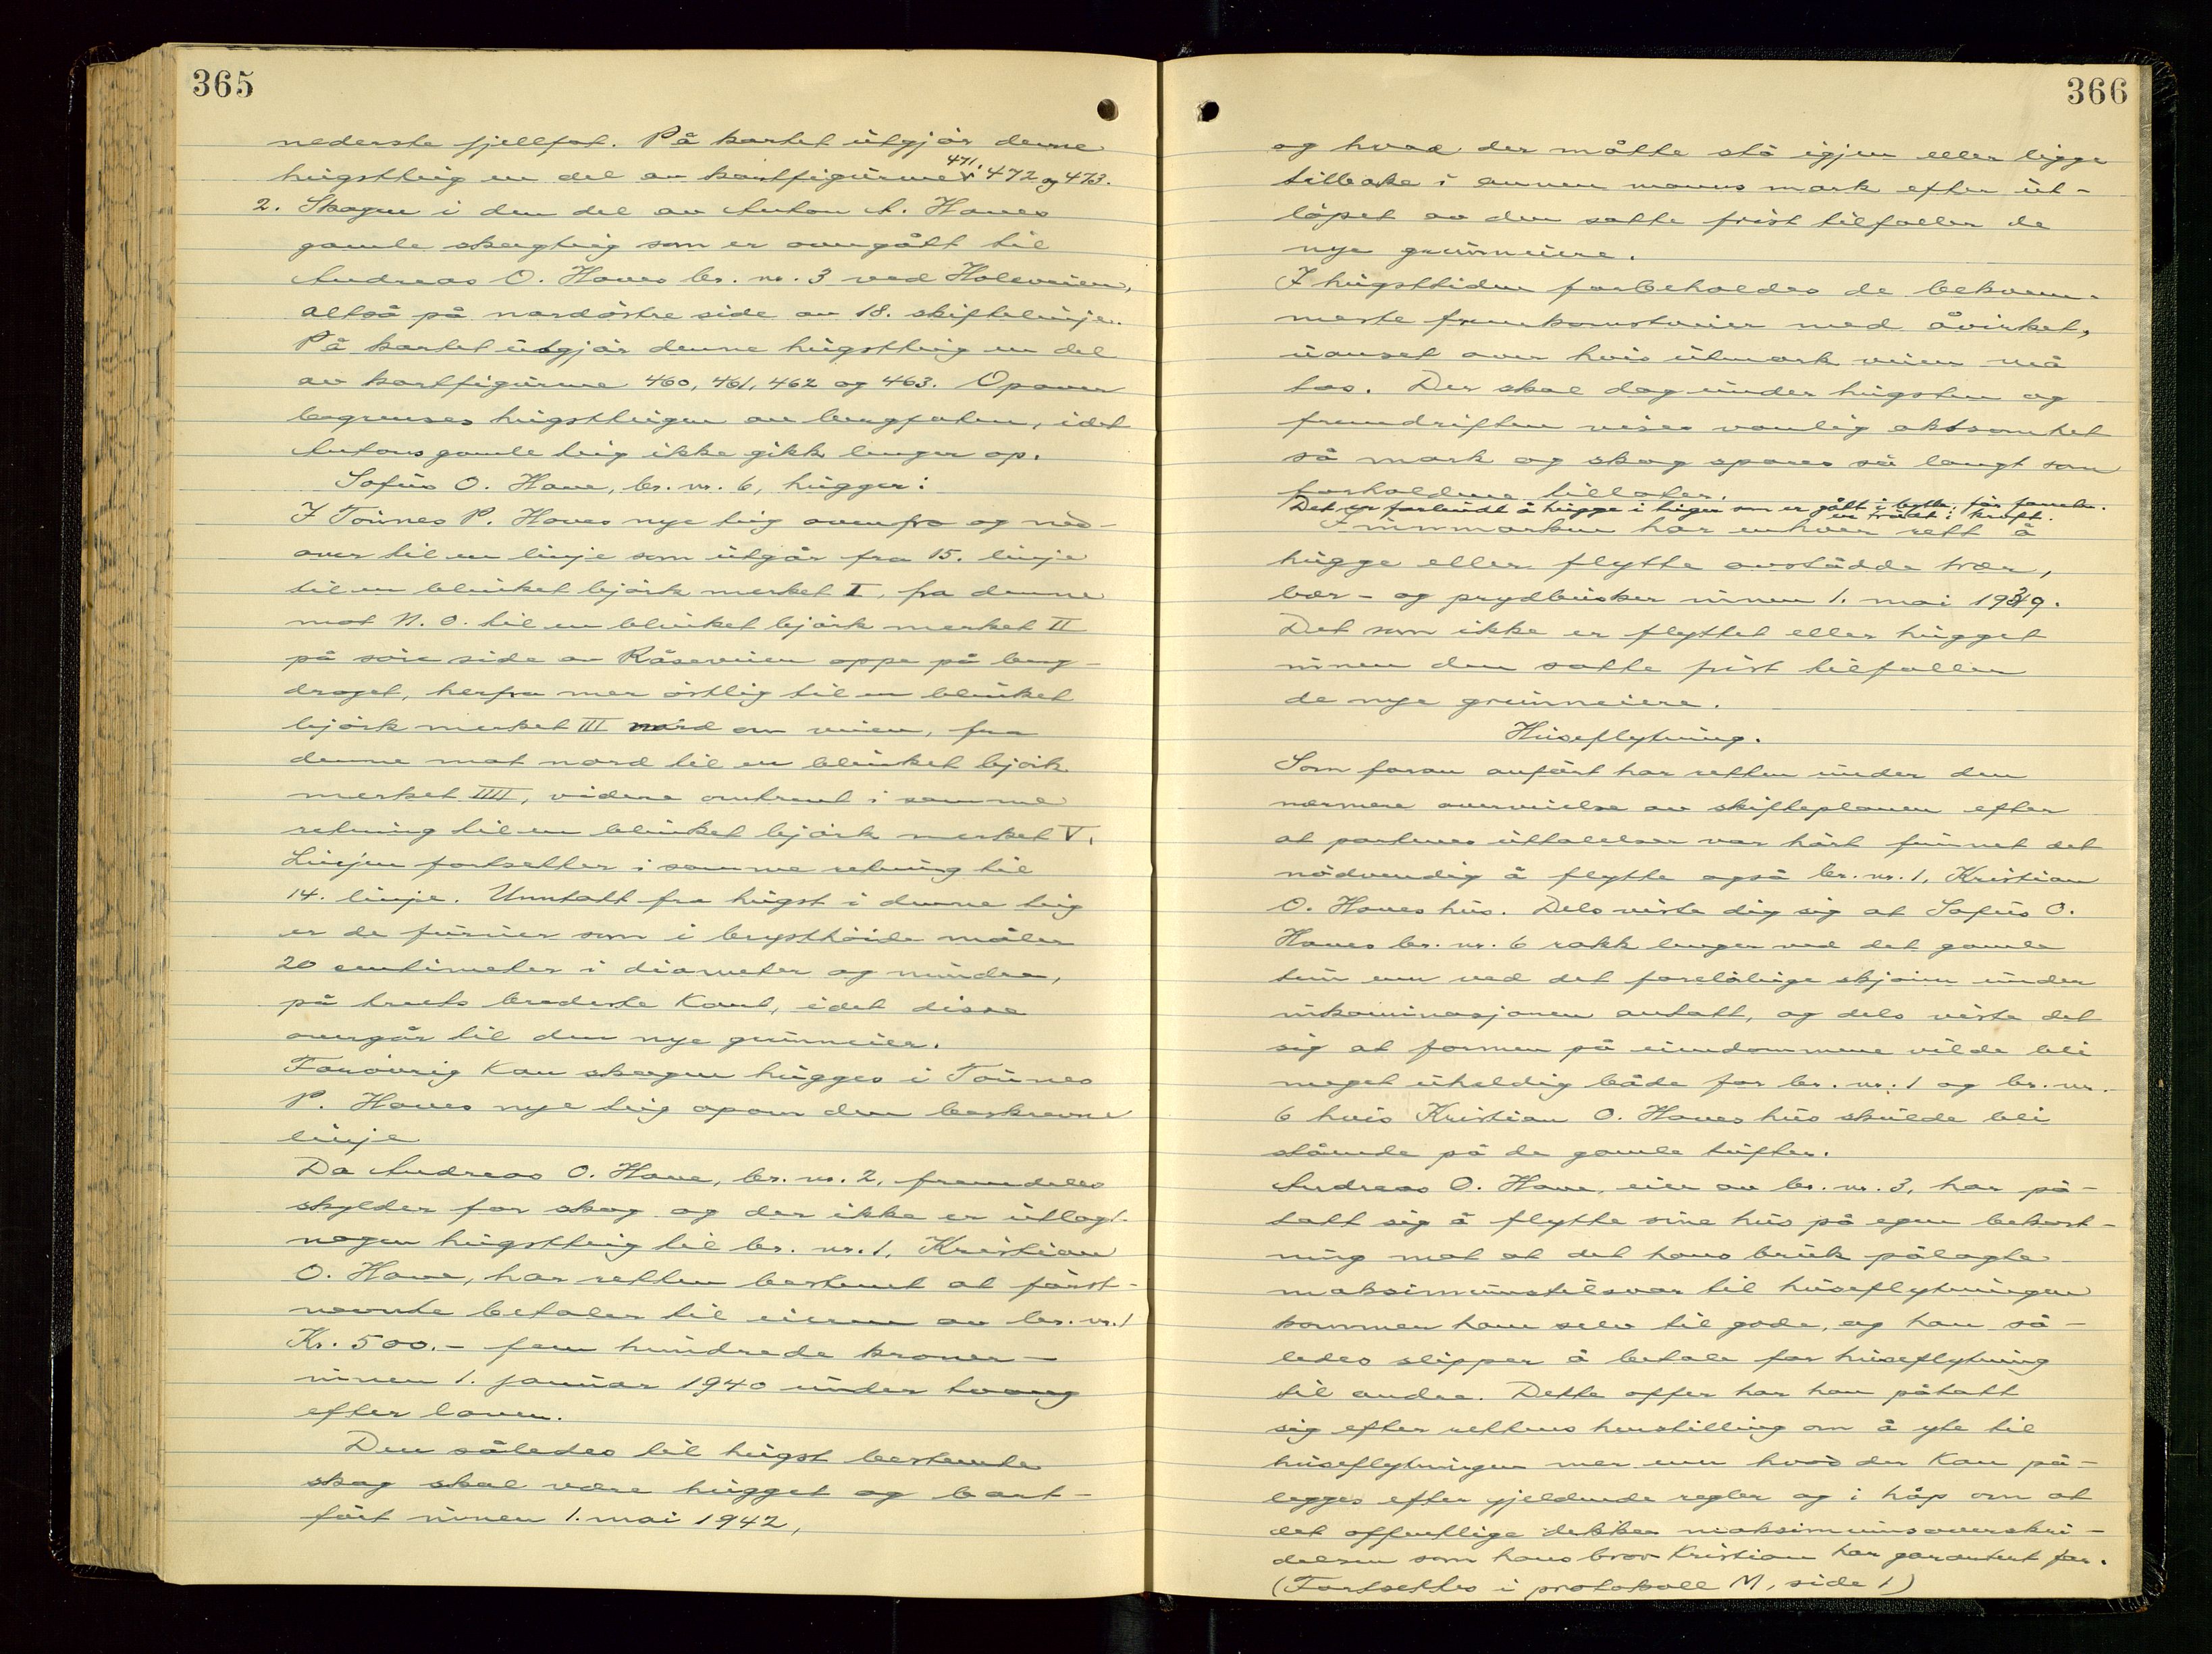 365
nederste fjellfot. På kartet utgjör denne
hugstteig en del av kartfigurene 471, 472 og 473.
2. Skogen i den del av Anton A. Haves
gamle skogteig som er overgått til
Andreas O. Haves br. nr. 3 ved Holeveien,
altså på nordöstre side av 18. skiftelinje.
På kartet utgjör denne hugstteig en del
av kartfigurene 460, 461, 462 og 463. Opover
begrenses hugstteigen av bergfoten, idet
Antons gamle teig ikke gikk lenger op.
Sofus O. Have, br. nr. 6, hugger:
I Tönnes P. Haves nye teig ovenfra og ned-
over til en linje som utgår fra 15. linje
til en blinket björk merket I, fra denne
mot N.O. til en blinket björk merket II
på söre side av Råseveien oppe på berg-
draget, herfra mer östlig til en blinket
björk merket III nord om veien, fra
denne mot nord til en blinket björk
merket IIII, videre omtrent i samme
retning til en blinket björk merket V.
Linjen fortsetter i samme retning til
14. linje. Unntatt fra hugst i denne teig
er de furuer som i brysthöide måler
20 centimeter i diameter og mindre,
på treets bredeste kant, idet disse
overgår til den nye grunneier.
Forövrig kan skogen hugges i Tönnes
P. Haves nye teig opom den beskrevne
linje
Da Andreas O. Have, br. nr. 2, fremdeles
skylder for skog og der ikke er utlagt
nogen hugstteig til br. nr. 1, Kristian
O. Have, har retten bestemt at först-
nevnte betaler til eieren av br. nr. 1
Kr. 500.- fem hundrede kroner-
innen 1. januar 1940 under tvang
efter loven.
Den således til hugst bestemte
skog skal være hugget og bort-
fört innen 1. mai 1942,
366
og hvad der måtte stå igjen eller ligge
tilbake i annen manns mark efter ut-
löpet av den satte frist tilfaller de
nye grunneiere.
I hugsttiden forbeholdes de bekvem-
meste fremkomstveier med åvirket,
uanset over hvis utmark veien må
tas. Der skal dog under hugsten og
fremdriften vises vanlig aktsomhet
så mark og skog spares så langt som
forholdene tillater.
Det er forbudt å hugge i teiger som er gått i bytte, för forretn.
er trådt i kraft.
I innmarken har enhver rett å
hugge eller flytte avstådde trær,
bær- og prydbusker innen 1. mai 1939.
Det som ikke er flyttet eller hugget
innen den satte frist tilfaller
de nye grunneiere.
Huseflytning.
Som foran anfört har retten under den
nærmere overveielse av skifteplanen efter
at partenes uttalelser var hört funnet det
nödvendig å flytte også br. nr. 1, Kristian
O. Haves hus. Dels viste dig sig at Sofus O.
Haves br. nr. 6 rakk lenger ved det gamle
tun enn ved det forelöbige skjönn under
inkaminasjonen antatt, og dels viste det
sig at formen på eiendommene vilde bli
meget uheldig både for br. nr. 1 og br. nr.
6 hvis Kristian O. Haves hus skulde bli
stående på de gamle tufter.
Andreas O. Have, eier av br. nr. 3, har på-
tatt sig å flytte sine hus på egen bekost-
ning mot at det hans bruk pålagte
maksimumstilsvar til huseflytningen
kommer ham selv til gode, og han så-
ledes slipper å betale for huseflytning
til andre. Dette offer har han påtatt
sig efter rettens henstilling om å yte til
huseflytningen mer enn hvad der kan på-
legges efter gjeldende regler og i håp om at
det offentlige dekker maksimumsoverskri-
delsen som hans bror Kristian har garantert for.
(Fortsettes i protokoll M, side 1)